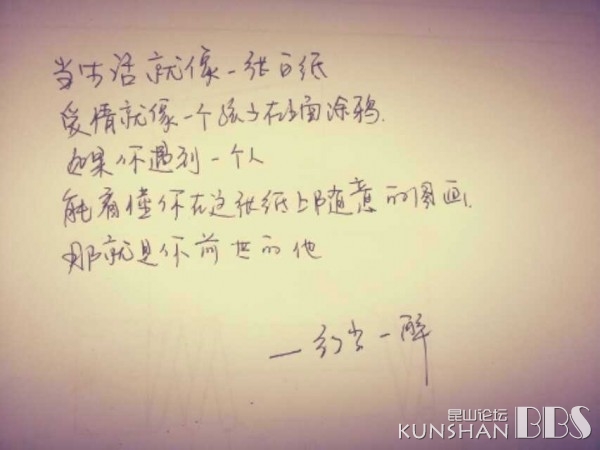 当生活就像一张白纸
爱情就像一个孩子在上面涂鸦.
如果你遇到一个人
能看懂你在这张纸上随意的图画.
那就是你前世的他
一醉
昆山论坛
KUNSHAN BBS